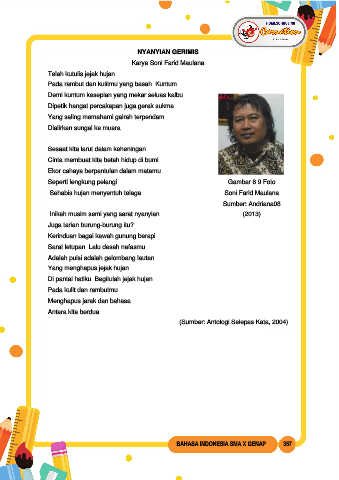 NYANYIAN GERIMIS
Karya Soni Farid Maulana
Telah kutulis jejak hujan
Pada rambut dan kulitmu yang basah Kuntum
Demi kuntum kesepian yang mekar seluas kalbu
Dipetik hangat percakapan juga gerak sukma
Yang saling memahami gairah terpendam
Dialirkan sungai ke muara
Sesaat kita larut dalam keheningan
Cinta membuat kita betah hidup di bumi
Ekor cahaya berpantulan dalam matamu
Seperti lengkung pelangi
Sehabis hujan menyentuh telaga
Gambar 8 9 Foto
Soni Farid Maulana
Sumber: Andriana08
(2013)
Inikah musim semi yang sarat nyanyian
Juga tarian burung-burung itu?
Kerinduan bagai kawah gunung berapi
Sarat letupan Lalu desah nafasmu
Adalah puisi adalah gelombang lautan
Yang menghapus jejak hujan
Di pantai hatiku Begitulah jejak hujan
Pada kulit dan rambutmu
Menghapus jarak dan bahasa
Antara kita berdua
(Sumber: Antologi Selepas Kata, 2004)
BAHASA INDONESIA SMA X GENAP 357